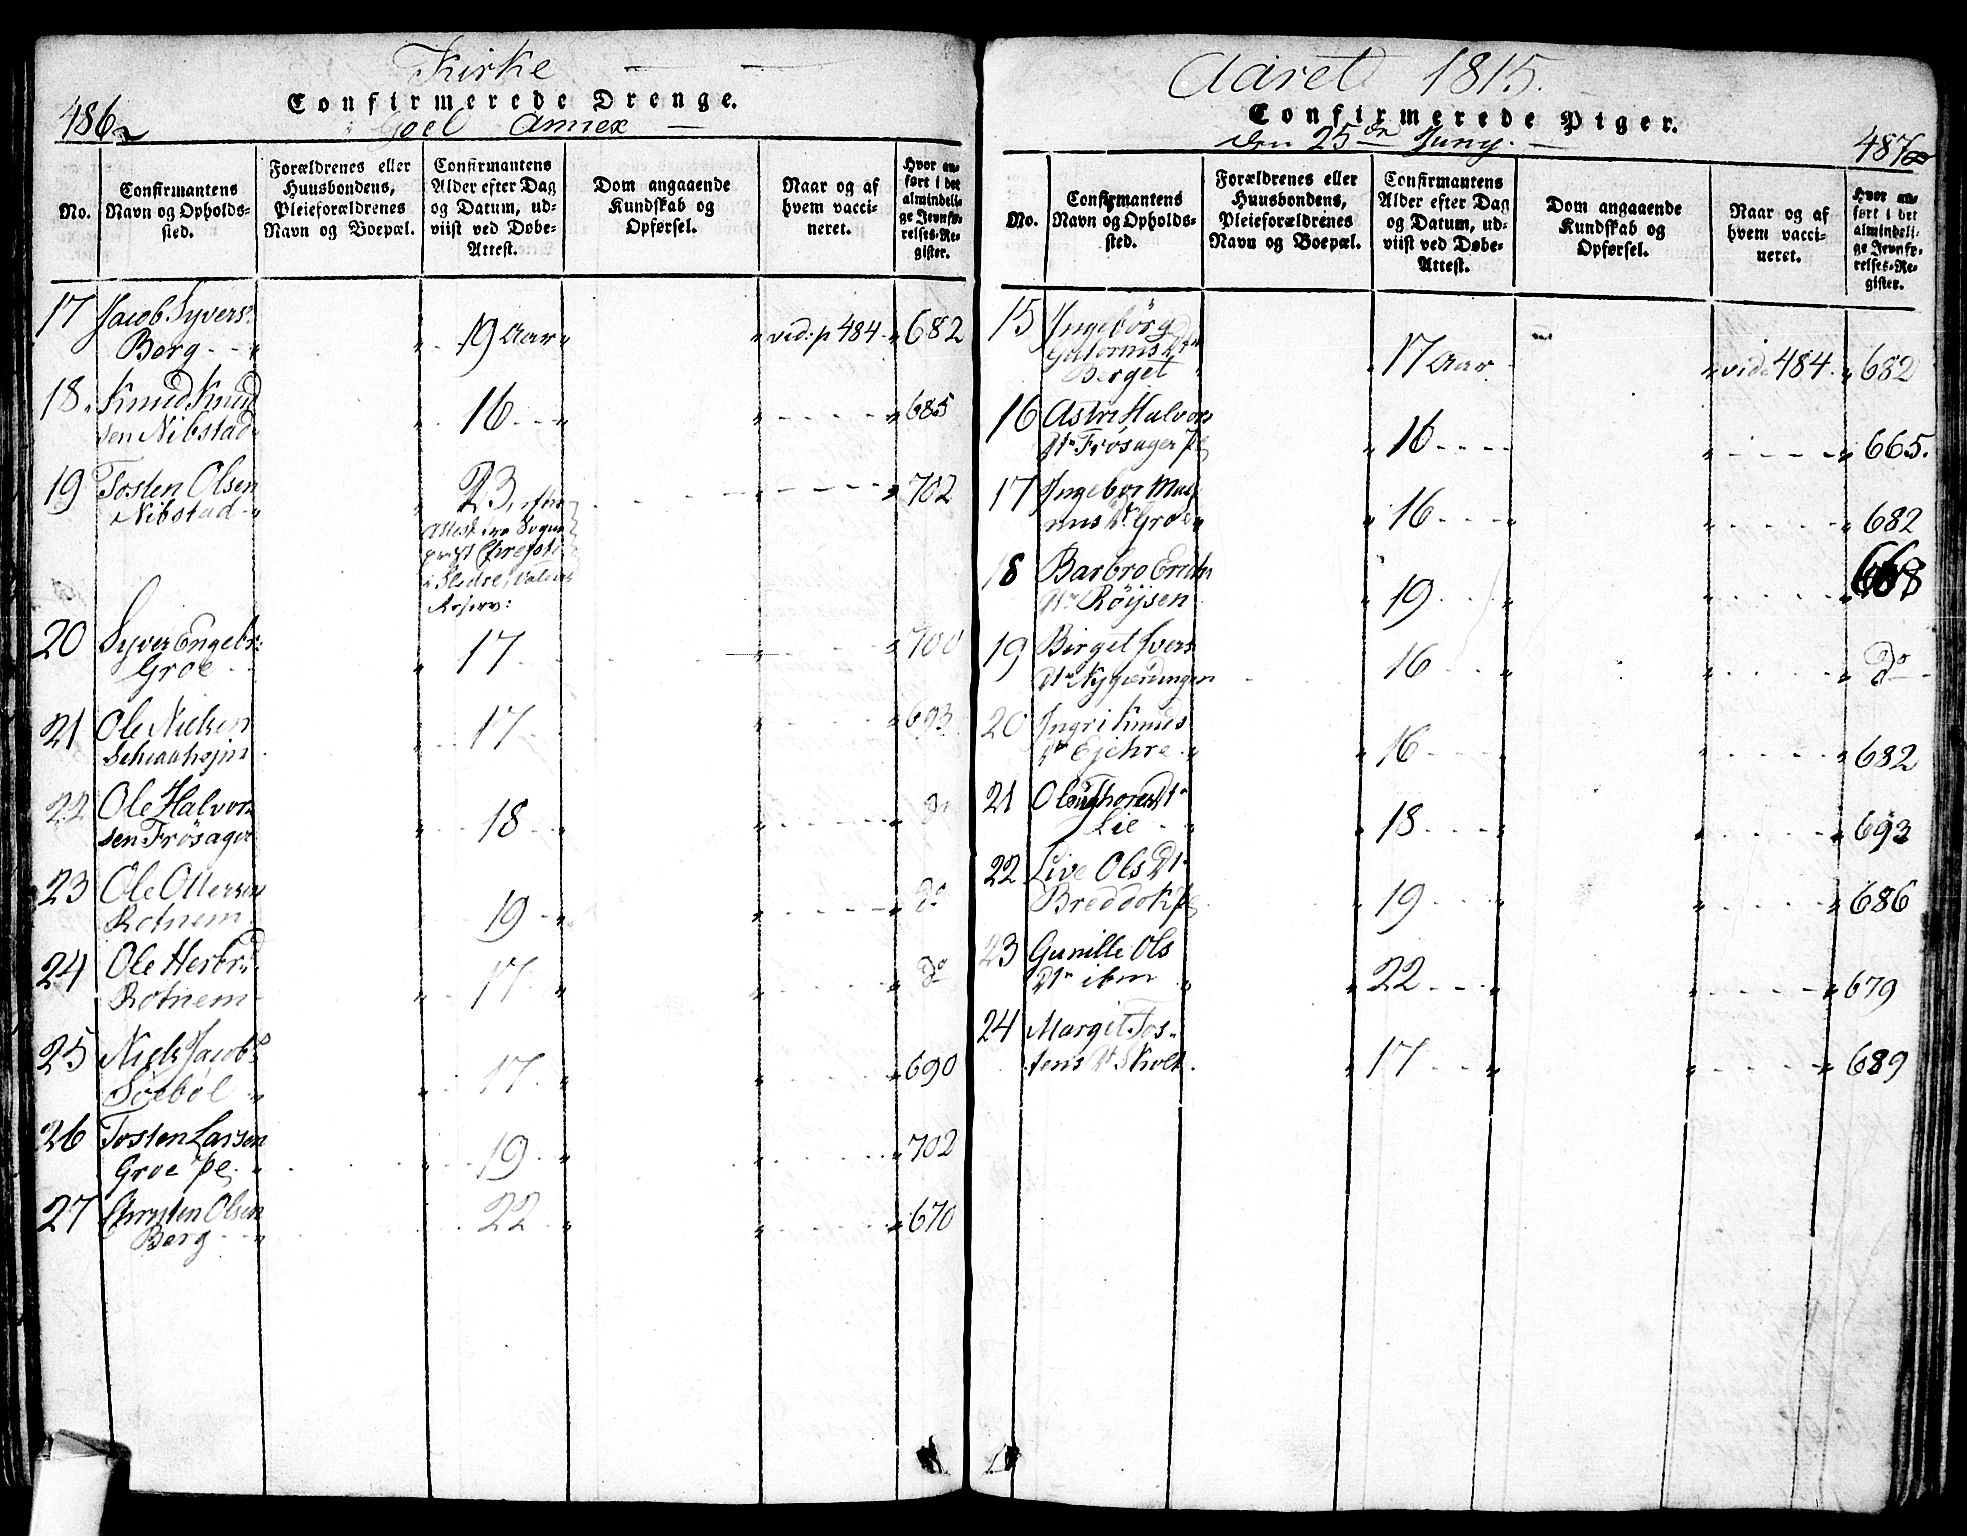 Kirke
486
Confirmerede Drenge.
Goel Annex
No.
Confirmantens Navn og Opholdssted.
Forældrenes eller Huusbondens, Pleieforældrenes Navn og Boepæl.
Confirmantens Alder efter Dag og Datum, udviist ved Døbe-Attest.
Dom angaaende Kundskab og Opførsel.
Naar og af hvem vaccineret.
Hvor anført i det almindelige Jevnførelses-Register.
17 Jacob Syvers:
Berg 19 Aar vid: p 484 682
18. Knud Knud
sen Nibstad 16 685
19 Tosten Olsen 23, 702
Nibstad
Attest fra Sogne
20 Syver Engebr: 17 700
Groe
21 Ole Nielsen 17 693
22 Ole Halvor
sen Frösager 18 do
23 Ole Ottersen
Rotnem 19 do
24 Ole Herbr:
Rotnem 17 do
25 Niels Jacobs
Söeböl 17 690
26 Tosten Larsen
Groe pl 19 702
27 Chrysten Olsen 22 670
Berg
Aaret 1815.
Confirmerede Piger.
den 25de Juny.
487
No.
Confirmantens Navn og Opholdssted.
Forældrenes eller Huusbondens, Pleieforældrenes Navn og Boepæl.
Confirmantens Alder efter Dag og Datum, udviist ved Døbe-Attest.
Dom angaaende Kundskab og Opførsel.
Naar og af hvem vaccineret.
Hvor anført i det almindelige Jevnførelses-Register.
15 Ingebörg
Gutorms Dtr
Berget 17 Aar vide 484 682
16 Astri Halvors
Dtr Frösager pl 16 665.
17 Ingebor Mag
nus Dtr Groe 16 682
18 Barbro Erichs 668
Dtr Röijsen 19
19 Birget Ivers
Dtr Nygerdingen 16 do
20 Ingri Knuds
Dtr Ejehre 16 682
21 Thores Dtr
Lie 18 693
22 Live Ols Dtr
Breddok pl 19 686
23 Gunille Ols
Dtr ibm 22 679
24 Margit Tos-
tens Dt Skolt 17 689